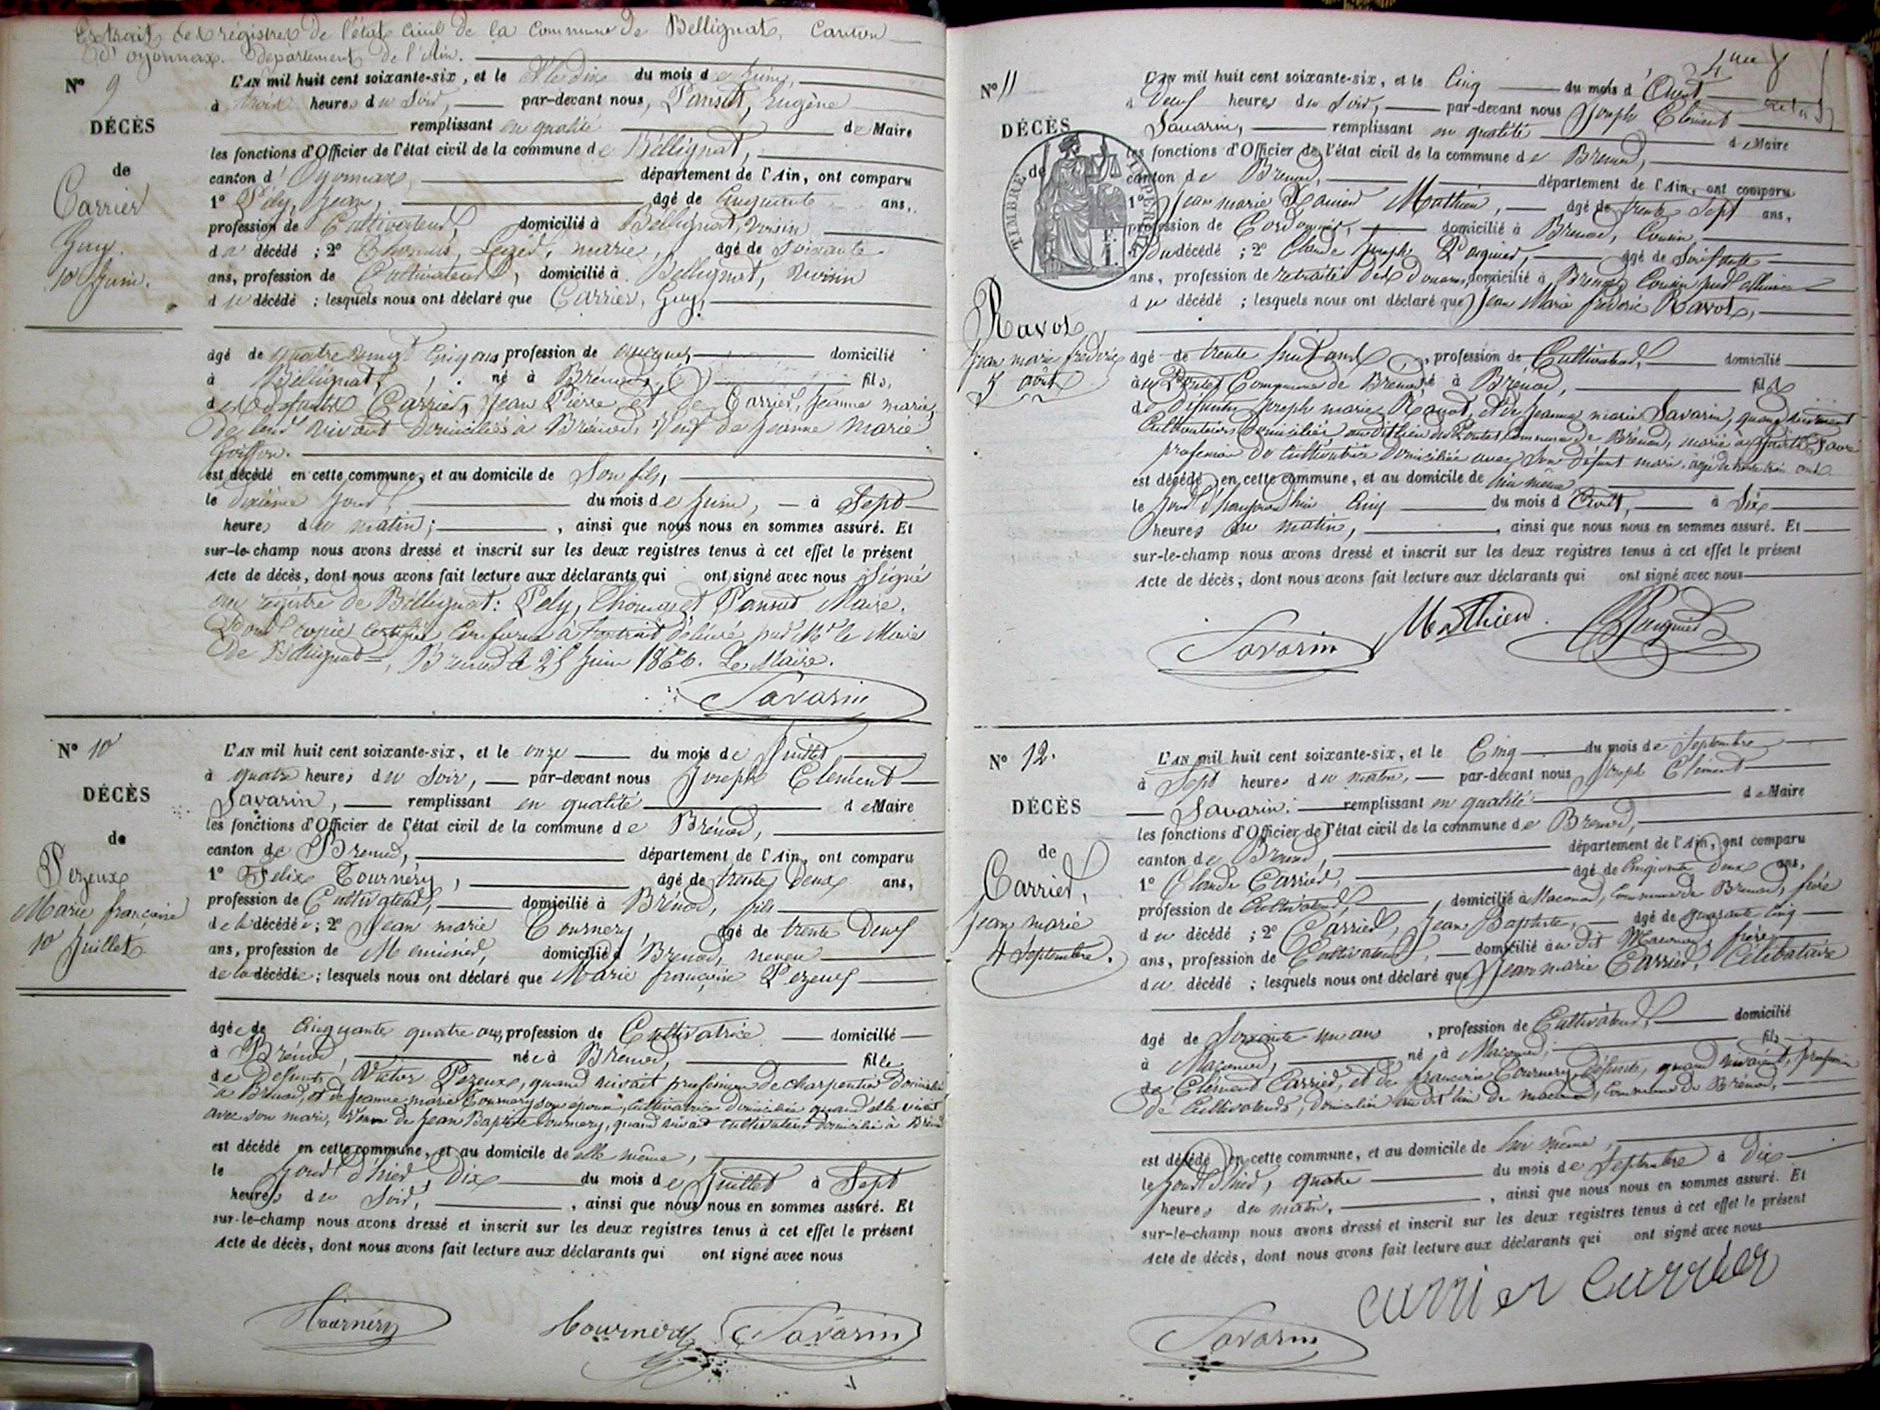 Extrait des régistres de l'état civil de la commune de Bellignat, Canton
d'oyonnax. département de l'Ain.
N° 9
DÉCÈS
de
Carrier
Guy.
10 Juin.
L'AN mil huit cent soixante-six, et le dix du mois de Juin,
à trois heures du Soir, par-devant nous, Pansut, Eugène
remplissant en qualité de Maire
les fonctions d'Officier de l'état civil de la commune de Béllignat,
canton d'Oyonnax, département de l'Ain, ont comparu
1° Pély, Jean, âgé de Cinquante ans,
profession de Cultivateur, domicilié à Béllignat, voisin
du décédé ; 2° Thomas, marie, âgé de Soixante
ans, profession de Cultivateur, domicilié à Bellignat, voisin
du décédé ; lesquels nous ont déclaré que Carrier, Guy,
âgé de quatre vingt ans profession de domicilié
à Béllignat, né à Brénod, fils,
de défunts Carrier, Jean Pierre et de Carrier, Jeanne marie,
de leur vivant domiciliés à Brénod, Veuf de Jeanne Marie
est décédé en cette commune, et au domicile de Son fils,
le dixième jour du mois de Juin, à Sept
heures du matin ; , ainsi que nous nous en sommes assuré. Et
sur-le-champ nous avons dressé et inscrit sur les deux registres tenus à cet effet le présent
Acte de décès, dont nous avons fait lecture aux déclarants qui ont signé avec nous Signé
au registre de Béllignat : Pely, Thomas et Pansut Maire.
Pour copie certifiée conforme à l'extrait délivré par Mr le Maire
de Bellignat, Brenod le 25 Juin 1866. Le Maire.
Savarin
N° 10
DÉCÈS
de
Pezeux
Marie françoise
10 Juillet
L'AN mil huit cent soixante-six, et le onze du mois de Juillet
à quatre heures du Soir, par-devant nous Joseph Clément
Savarin, remplissant en qualité de Maire
les fonctions d'Officier de l'état civil de la commune de Brénod,
canton de Brenod, département de l'Ain, ont comparu
1° Félix Tournery, âgé de trente deux ans,
profession de Cultivateur, domicilié à Brénod, fils
de la décédée ; 2° Jean marie Tournery, âgé de trente deux
ans, profession de Menuisier, domicilié à Brenod, neveu
de la décédée ; lesquels nous ont déclaré que Marie françoise Pezeux
âgée de cinquante quatre ans, profession de Cultivatrice domicilié
à Brénod, née à Brénod, fille
de Défunts, Victor Pezeux, quand vivait profession de charpentier domicilié
à Brénod, et de Jeanne marie Tournery son épouse, Cultivatrice domiciliée quand elle vivait
avec son mari, Veuve de Jean Baptiste Tournery, quand vivait cultivateur domicilié à Brénod
est décédé en cette commune, et au domicile de elle même,
le jour d'hier, Dix du mois de Juillet à Sept
heures du Soir, , ainsi que nous nous en sommes assuré. Et
sur-le-champ nous avons dressé et inscrit sur les deux registres tenus à cet effet le présent
Acte de décès, dont nous avons fait lecture aux déclarants qui ont signé avec nous
Tournéry Tournery Savarin
N° 11
DÉCÈS
de
TIMBRE IMPÉRIAL
Ravot
Jean marie fréderic
5 août
L'AN mil huit cent soixante-six, et le Cinq du mois d'Août
à Deux heures du Soir, par-devant nous Joseph Clément
Savarin, remplissant en qualité de Maire
les fonctions d'Officier de l'état civil de la commune de Brenod,
canton de Brenod, département de l'Ain, ont comparu
1° Jean marie Xavier Mathieu, âgé de trente Sept ans,
profession de Cordonnier, domicilié à Brenod, Cousin
du décédé ; 2° Claude Joseph Parguier, âgé de Soixante
ans, profession de retraité des douanes, domicilié à Brenod, Cousin par alliance
du décédé ; lesquels nous ont déclaré que Jean Marie fréderic Ravot,
âgé de trente huit ans, profession de Cultivateur, domicilié
Commune de Brenod né à Brénod, fils
de Défunts Joseph marie Ravot, et de Jeanne marie Savarin, quand vivaient
Cultivateurs domiciliés au dit lieu commune de Brénod, marié à
profession de cultivatrice domiciliée avec Son défunt mari, âgée de trente trois ans
est décédé en cette commune, et au domicile de lui même
le jour d'haujourd'hui Cinq du mois d'Août, à Six
heures du matin, , ainsi que nous nous en sommes assuré. Et
sur-le-champ nous avons dressé et inscrit sur les deux registres tenus à cet effet le présent
Acte de décès, dont nous avons fait lecture aux déclarants qui ont signé avec nous
Savarin Mathieu Parguier
N° 12.
DÉCÈS
de
Carrier,
Jean marie
4 Septembre.
L'AN mil huit cent soixante-six, et le Cinq du mois de Septembre
à Sept heures du matin, par-devant nous Joseph Clément
Savarin remplissant en qualité de Maire
les fonctions d'Officier de l'état civil de la commune de Brenod,
canton de Brenod, département de l'Ain, ont comparu
1° Claude Carrier, âgé de Cinquante deux ans,
profession de Cultivateur, domicilié à Maconod, Commune de Brenod, frère
du décédé ; 2° Carrier, Jean Baptiste, âgé de quarante cinq
ans, profession de Cultivateur, domicilié au dit Maconod, frère
du décédé ; lesquels nous ont déclaré que Jean marie Carrier, Célibataire
âgé de Soixante un ans, profession de Cultivateur, domicilié
à Maconod, né à Maconod, fils
de Clément Carrier, et de françoise Tournery, Défunts, quand vivaient, profession
de Cultivateurs, domiciliés au dit lieu de maconod, Commune de Brénod,
est décédé en cette commune, et au domicile de lui même,
le jour d'hier, quatre du mois de Septembre à Dix
heures du matin, , ainsi que nous nous en sommes assuré. Et
sur-le-champ nous avons dressé et inscrit sur les deux registres tenus à cet effet le présent
Acte de décès, dont nous avons fait lecture aux déclarants qui ont signé avec nous
Savarin carrier Carrier